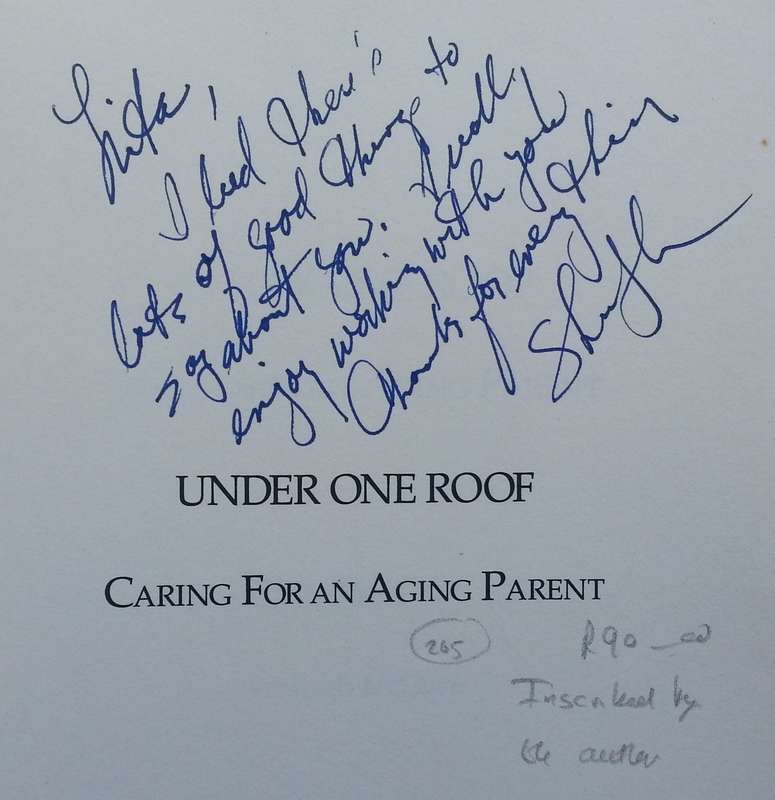 Nita,
I feel there's
lots of good things to
say about you. Really
enjoy working with you
Thanks for everything
UNDER ONE ROOF
CARING FOR AN AGING PARENT
265
R90_00
Inscribed by
the author